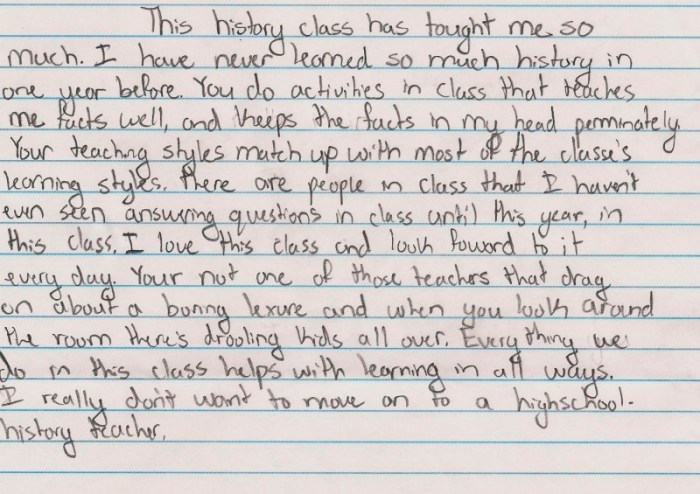 This history class has tought me so
much. I have never learned so much history in
one year before. You do activities in class that teaches
me facts well, and keeps the facts in my head perminately.
Your teaching styles match up with most of the classe's
learning styles. There are people in class that I haven't
even seen answuring questions in class until this year, in
this class. I love this class and look foward to it
every day. Your not one of those teachers that drag
on about a boring lexure and when you look around
the room there's drooling kids all over. Every thing we
do in this class helps with learning in all ways.
I really don't want to move on to a highschool-
history teacher.